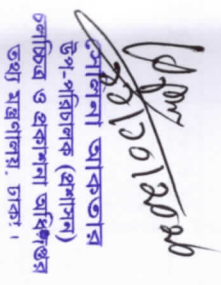 সেলিনা আকতার
উপ-পরিচালক (প্রশাসন)
চলচ্চিত্র ও প্রকাশনা অধিদপ্তর
তথ্য মন্ত্রণালয়, ঢাকা।